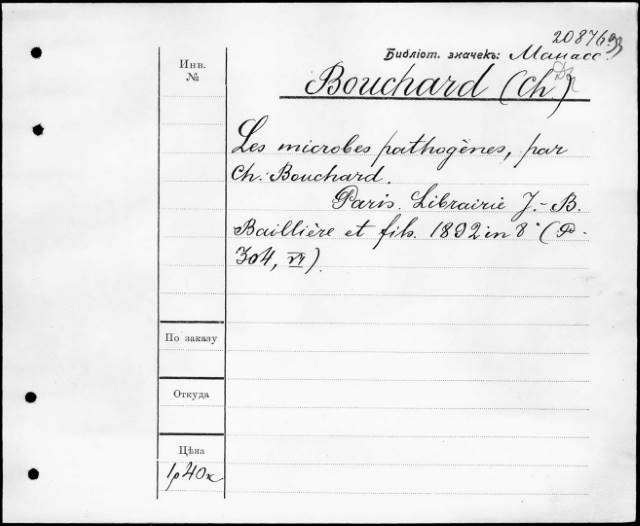 20876
Библіот. значекъ: Манасс.
Инв.
№
Bouchard (Ch)
Les microbes pathogènes, par
Ch. Bouchard.
Paris. Librairie J.-B.
Baillière et fils. 1892 in 8° (P.
304, VI).
По заказу
Откуда
Цѣна
1р 40к